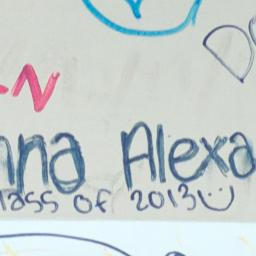 -N
nna Alexa
lass of 2013